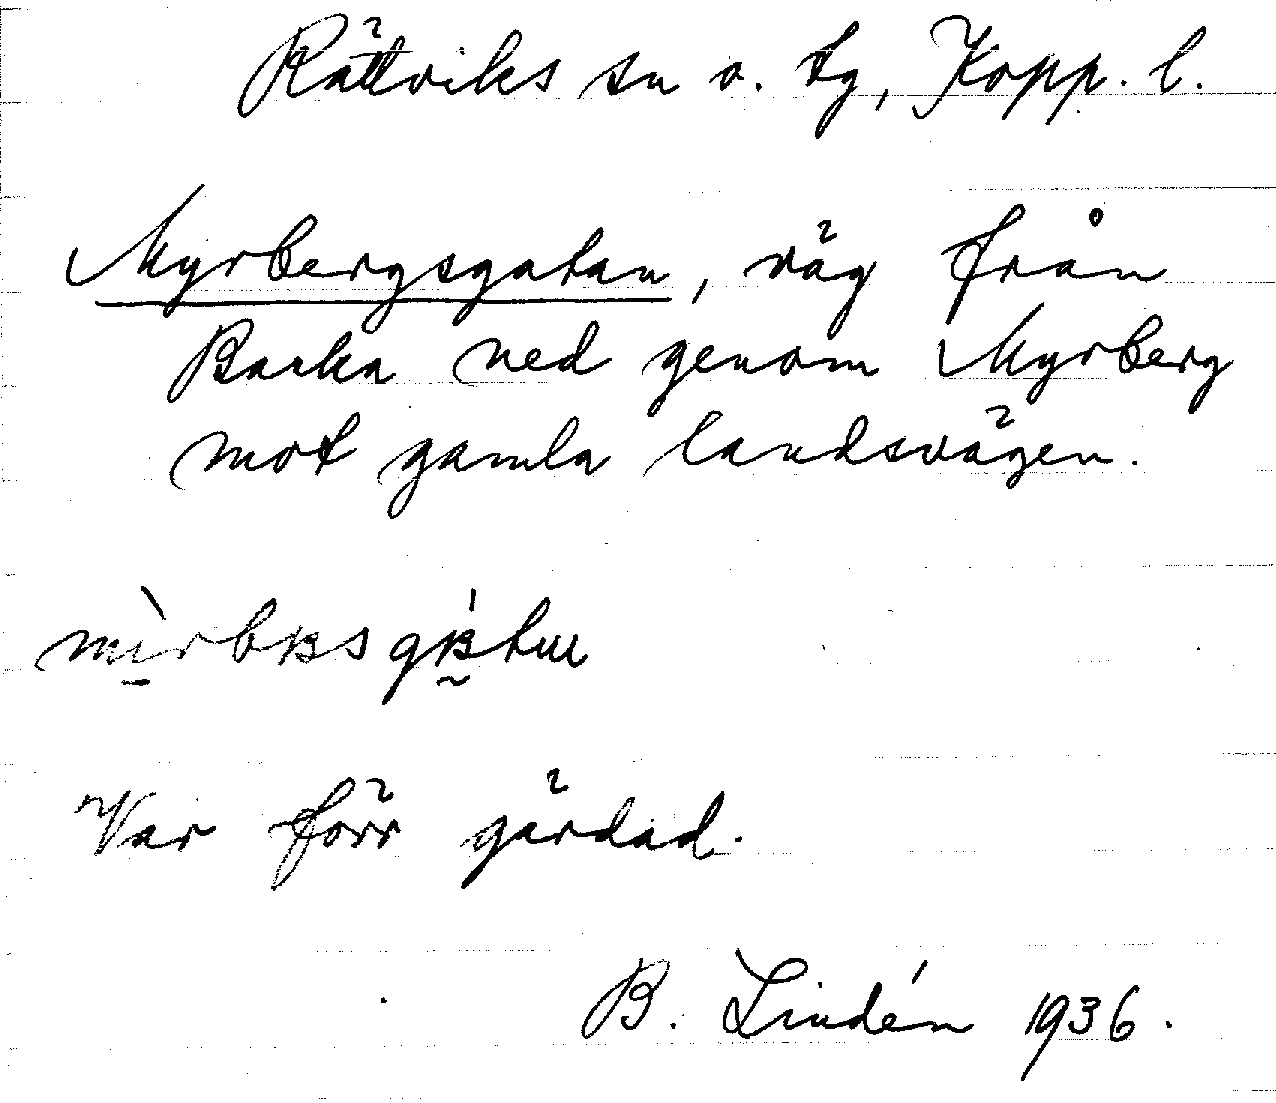 Rättviks sn o. tg, Kopp. l.
Myrbergsgatan, väg från
Backa ned genom Myrberg
mot gamla landsvägen.
Var förr gärdad.
B. Lindén 1936.